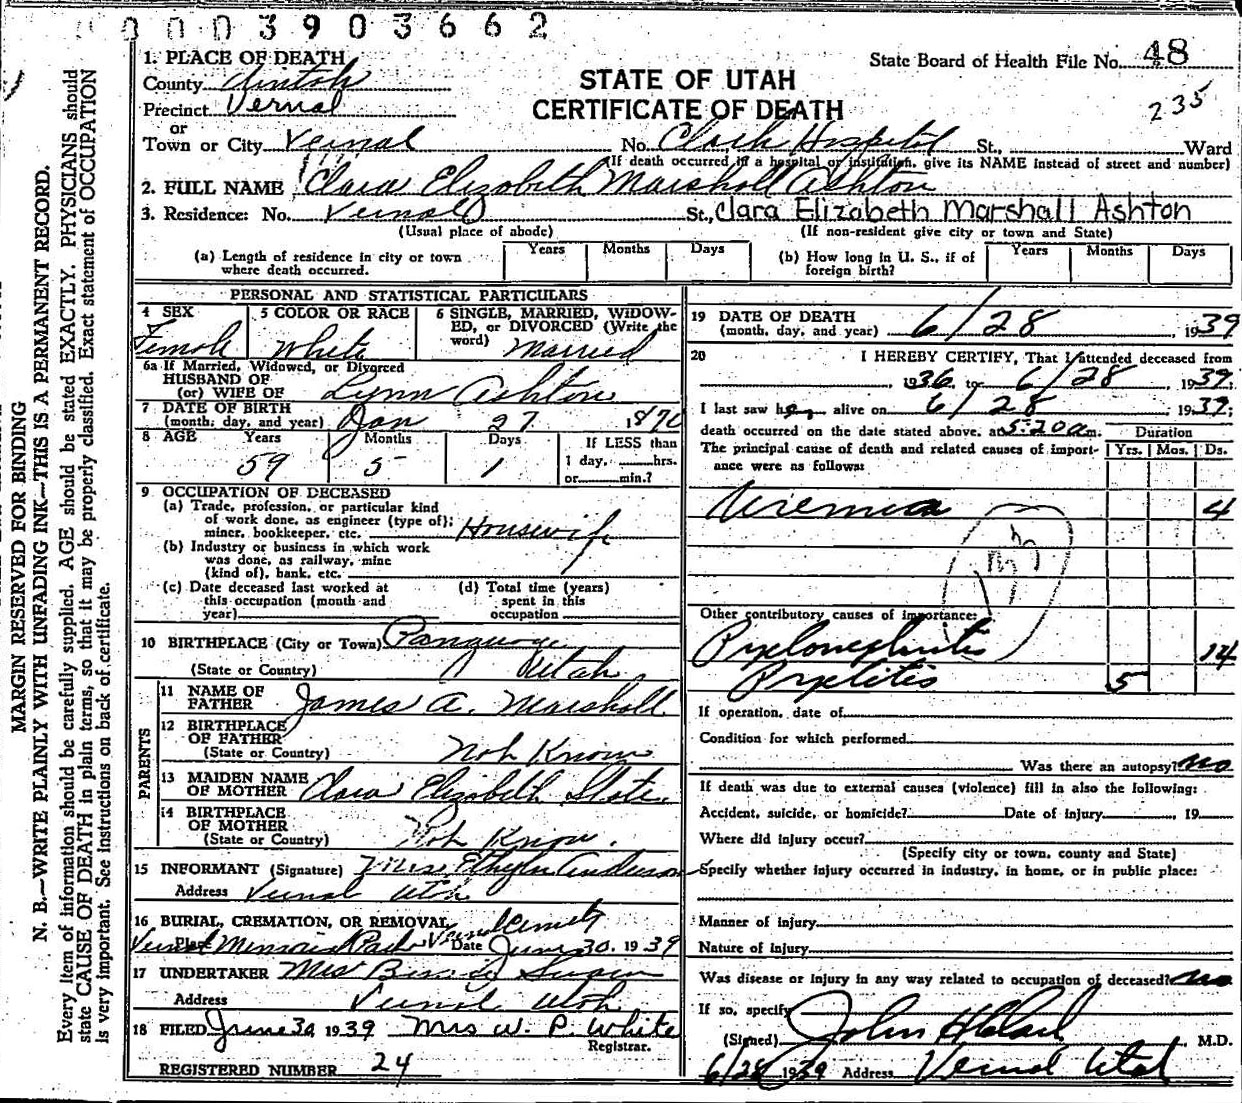 0003903662
1. PLACE OF DEATH
State Board of Health File No. 48
County Uintah
STATE OF UTAH
235
Precinct Vernal
CERTIFICATE OF DEATH
or
Town or City Vernal No. Clark Hospital St., Ward
(If death occurred if a hospital or institution, give its NAME instead of street and number)
2. FULL NAME Clara Elizabeth Marshall Ashton
3. Residence: No. Vernal St., Clara Elizabeth Marshall Ashton
(Usual place of abode) (If non-resident give city or town and State)
(a) Length of residence in city or town where death occurred. Years Months Days (b) How long in U. S., if of foreign birth? Years Months Days
PERSONAL AND STATISTICAL PARTICULARS
4 SEX 5 COLOR OR RACE 6 SINGLE, MARRIED, WIDOWED, or DIVORCED (Write the word)
Female White Married
6a If Married, Widowed, or Divorced
HUSBAND OF
(or) WIFE OF Lynn Ashton
7 DATE OF BIRTH
(month, day, and year) Jan 27
8 AGE Years Months Days If LESS than
59 5 1 1 day, hrs.
or min.?
9 OCCUPATION OF DECEASED
(a) Trade, profession, or particular kind
of work done, as engineer (type of);
miner, bookkeeper, etc. Housewife
(b) Industry or business in which work
was done, as railway, mine
(kind of), bank, etc.
(c) Date deceased last worked at
this occupation (month and
year)
(d) Total time (years)
spent in this
occupation
10 BIRTHPLACE (City or Town) Panguich
(State or Country) Utah
PARENTS
11 NAME OF
FATHER James A. Marshall
12 BIRTHPLACE
OF FATHER
(State or Country) Noh Known
13 MAIDEN NAME
OF MOTHER Clara Elizabeth Slate
14 BIRTHPLACE
OF MOTHER
(State or Country) Noh Know.
15 INFORMANT (Signature) Mrs. Ethyln Anderson
Address Vernal Utah
16 BURIAL, CREMATION, OR REMOVAL
Place Vernal Memorial Park Vernal Cemetery Date June 30, 1939
17 UNDERTAKER Mrs Swain
Address Vernal Utah
18 FILED June 30 1939 Mrs W. P. White
Registrar.
REGISTERED NUMBER 24
19 DATE OF DEATH
(month, day, and year) 6/28 1939
20 I HEREBY CERTIFY, That I attended deceased from
, 1936, to 6/28, 1939.
I last saw her alive on 6/28, 1939;
death occurred on the date stated above, at 5:20 a m. Duration
The principal cause of death and related causes of importance were as follows: Yrs. Mos. Ds.
Uremia 4
Other contributory causes of importance:
Pyelonephritis 14
Pyelitis 5
If operation, date of
Condition for which performed
Was there an autopsy? no
If death was due to external causes (violence) fill in also the following:
Accident, suicide, or homicide? Date of injury , 19
Where did injury occur?
(Specify city or town, county and State)
Specify whether injury occurred in industry, in home, or in public place:
Manner of injury
Nature of injury
Was disease or injury in any way related to occupation of deceased? no
If so, specify
(Signed) John H Clark M.D.
6/28 1939 Address Vernal Utah
MARGIN RESERVED FOR BINDING
N. B.—WRITE PLAINLY WITH UNFADING INK—THIS IS A PERMANENT RECORD.
Every item of information should be carefully supplied. AGE should be stated EXACTLY. PHYSICIANS should
state CAUSE OF DEATH in plain terms, so that it may be properly classified. Exact statement of OCCUPATION
is very important. See instructions on back of certificate.